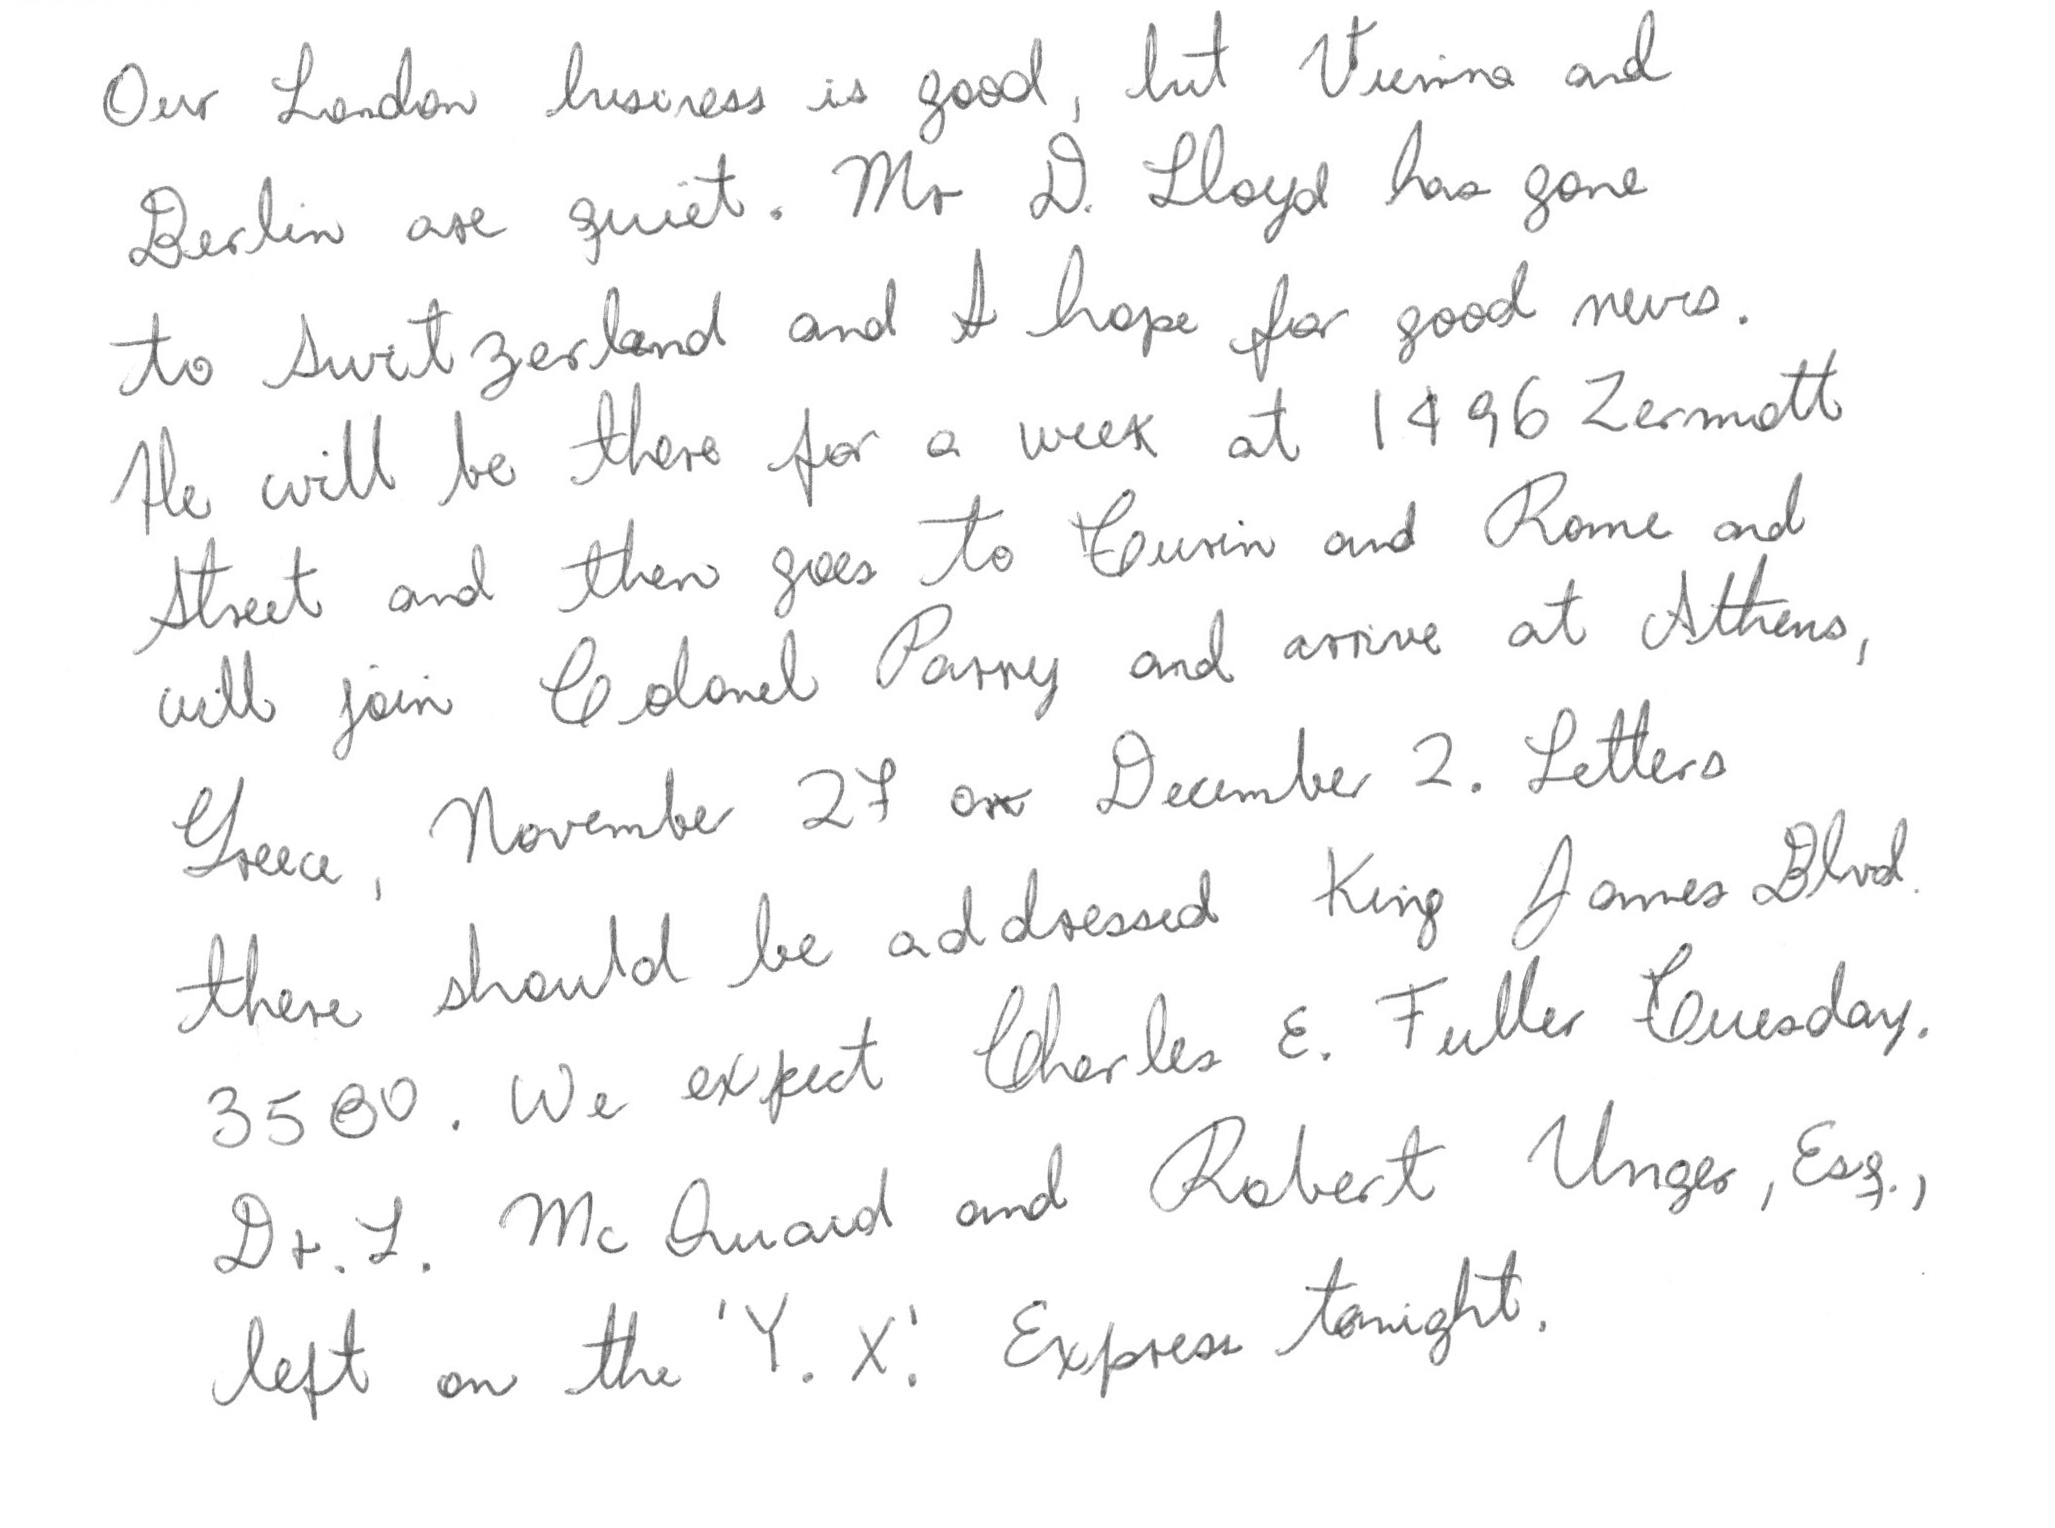 Our London business is good, but Vienna and
Berlin are quiet. Mr D. Lloyd has gone
to Switzerland and I hope for good news.
He will be there for a week at 1496 Zermott
Street and then goes to Turin and Rome and
will join Colonel Parry and arrive at Athens,
Greece, November 27 or December 2. Letters
there should be addressed King James Blvd.
3580. We expect Charles E. Fuller Tuesday.
Dr. L. Mc Quaid and Robert Unger, Esq.,
left on the 'Y. X.' Express tonight.